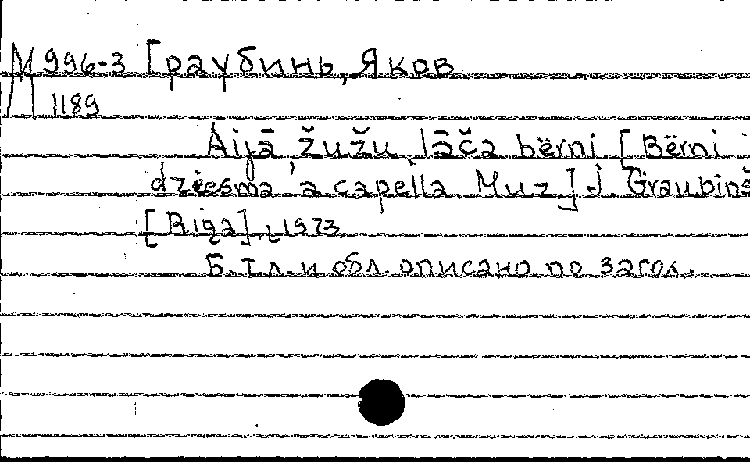 М 996-3 Граубинь, Яков
1189
Aijā, žužu, lāča bērni [Bērni
dziesma a capella Muz.] J. Graubiņš
[Rīga], 1973
Б. т. л. и обл. описано по загол.